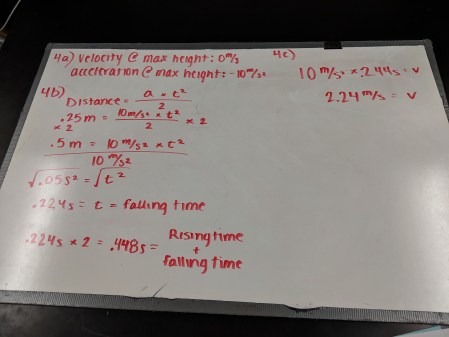 4a) velocity @ max height: 0 m/s
acceleration @ max height: -10 m/s²
4b)
Distance = a × t² / 2
.25m = 10m/s² × t² / 2 × 2
× 2
.5m = 10 m/s² × t²
10 m/s²
√.05s² = √t²
.224s = t = falling time
.224s × 2 = .448s = Rising time + falling time
4c)
10 m/s² × .244s = v
2.24 m/s = v